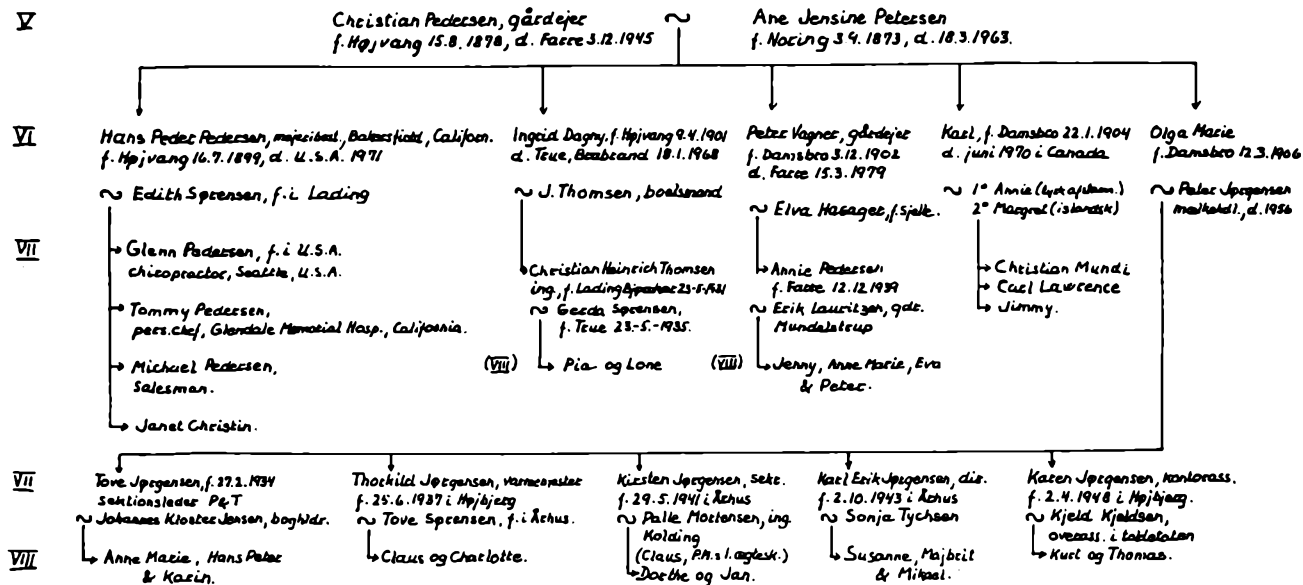 V
Christian Pedersen, gårdejer ~ Ane Jensine Petersen
f. Højvang 15.8.1878, d. Farre 3.12.1945
f. Noring 3.9.1873, d. 18.3.1963.
VI
Hans Peder Pedersen, mejeribest., Bakersfield, Californ.
f. Højvang 16.7.1899, d. U.S.A. 1971
~ Edith Sørensen, f. i Lading
VII
Glenn Pedersen, f. i U.S.A.
chiropractor, Seattle, U.S.A.
Tommy Pedersen,
pers.chef, Glendale Memorial Hosp., California.
Michael Pedersen,
Salesman.
Janet Christin.
Ingrid Dagny, f. Højvang 9.4.1901
d. True, Brabrand 18.1.1968
~ J. Thomsen, boelsmand
Christian Heinrich Thomsen
ing., f. Lading 23-5-1931
~ Gerda Sørensen,
f. True 23-5.-1935.
(VIII)
Pia og Lone
Peter Vagner, gårdejer
f. Damsbro 3.12.1902
d. Farre 15.3.1979
~ Elva Hasager, f. Sjelle.
Annie Pedersen
f. Farre 12.12.1939
~ Erik Lauritzen, gdr.
Mundelstrup
(VIII)
Jenny, Anne Marie, Eva
& Peter.
Karl, f. Damsbro 22.1.1904
d. juni 1970 i Canada
~ 1° Annie (tysk afstam.)
2° Margret (islandsk)
Christian Mundi
Carl Lawrence
Jimmy.
Olga Marie
f. Damsbro 12.3.1906
~ Peter Jørgensen
mælkehdl., d. 1956
VII
Tove Jørgensen, f. 27.2.1934
sektionsleder P&T
~ Johannes Kloster Jensen, boghdr.
VIII
Anne Marie, Hans Peter
& Karin.
Thorkild Jørgensen, varmemester
f. 25.6.1937 i Højbjerg
~ Tove Sørensen, f. i Århus.
Claus og Charlotte.
Kirsten Jørgensen, sekr.
f. 29.5.1941 i Århus
~ Palle Mortensen, ing.
Kolding
(Claus, P.M.s 1. ægtesk.)
Dorthe og Jan.
Karl Erik Jørgensen, dir.
f. 2.10.1943 i Århus
~ Sonja Tychsen
Susanne, Majbrit
& Mikael.
Karen Jørgensen, kontorass.
f. 2.4.1948 i Højbjerg.
~ Kjeld Kjeldsen,
overass. i toldetaten
Kurt og Thomas.